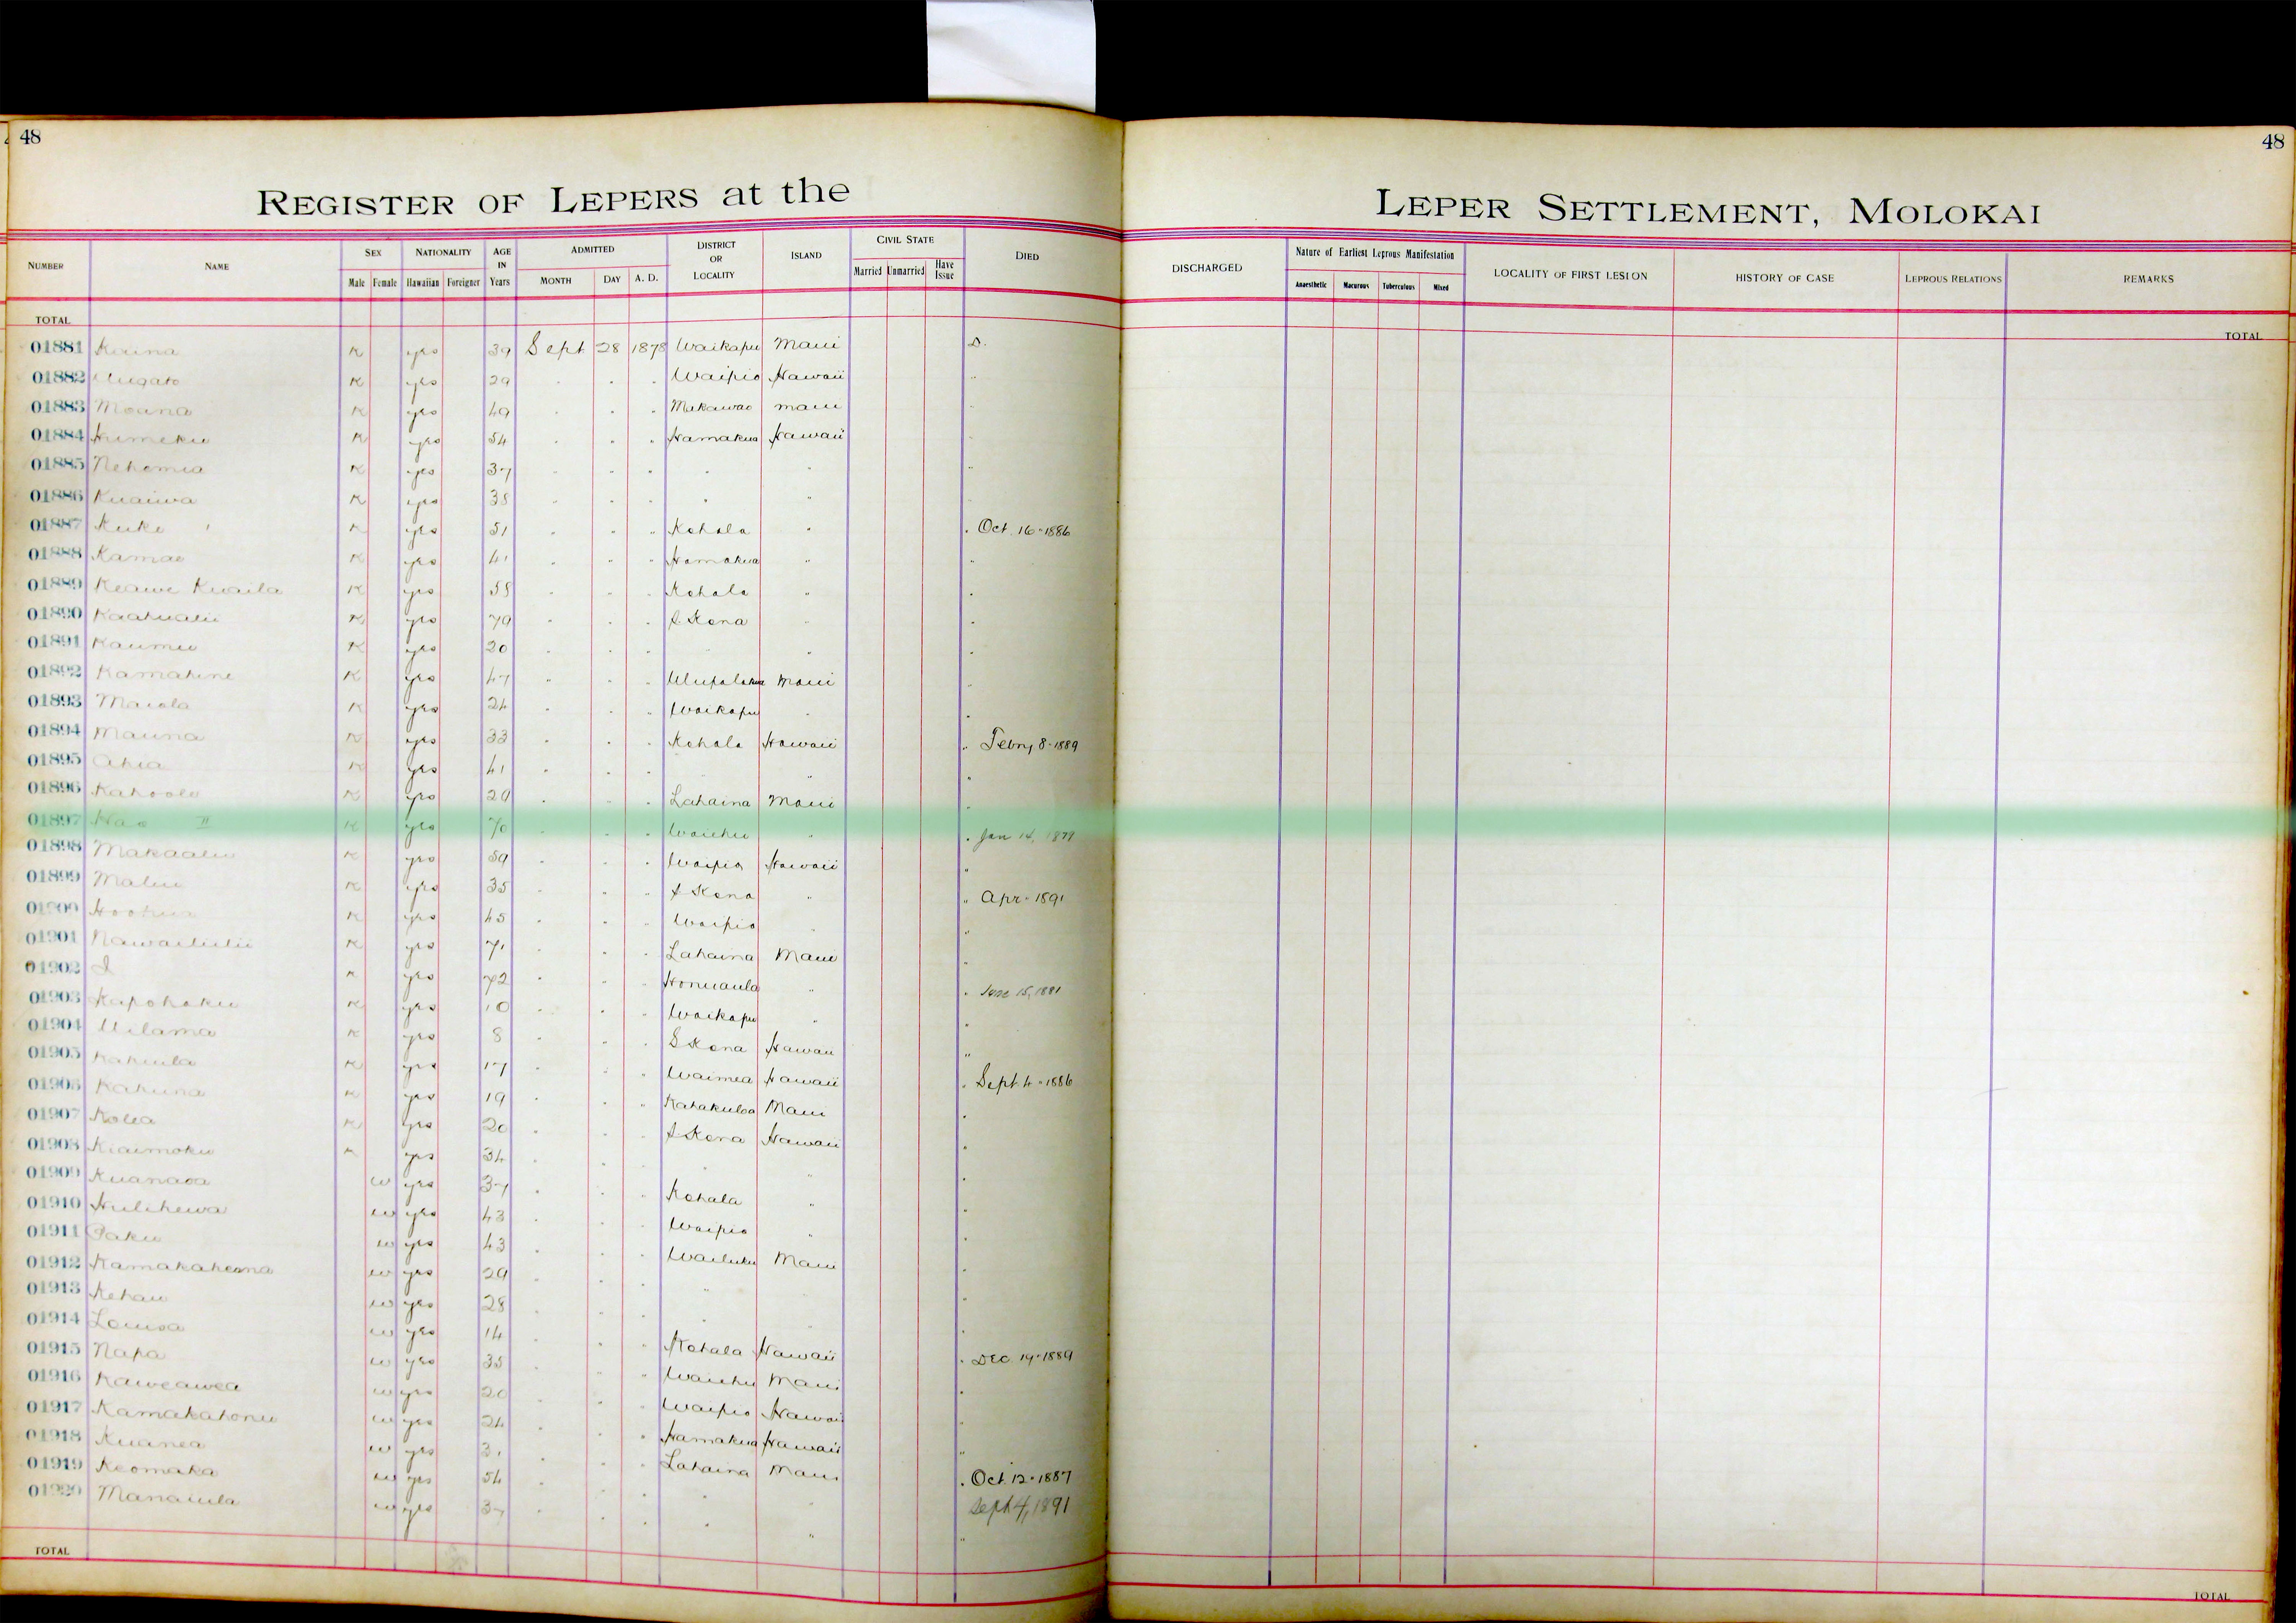 48
48
REGISTER OF LEPERS at the
LEPER SETTLEMENT, MOLOKAI
NUMBER NAME SEX Male Female NATIONALITY Hawaiian Foreigner AGE IN Years ADMITTED MONTH DAY A. D. DISTRICT OR LOCALITY ISLAND CIVIL STATE Married Unmarried Have Issue DIED
DISCHARGED Nature of Earliest Leprous Manifestation Anaesthetic Macurous Tuberculous Mixed LOCALITY OF FIRST LESION HISTORY OF CASE LEPROUS RELATIONS REMARKS
TOTAL
TOTAL
01881 K yes 39 Sept 28 1878 Waikapu Maui D.
01882 K yes 29 . . . Waipio Hawaii "
01883 Moana K yes 49 . . . Makawao maui "
01884 Humeku K yes 54 . . . Hamakua Hawaii "
01885 Nehemia K yes 37 " " " " " "
01886 Kuaiwa K yes 38 " " " " " "
01887 Kuke K yes 51 " " " Kohala " " Oct. 16 - 1886
01888 Kamao K yes 41 " " " Hamakua " "
01889 Keawe Kuaila K yes 58 " " " Kohala " "
01890 Kaahualii K yes 79 " " " Kona " "
01891 Kaumu K yes 20 " " " " " "
01892 Kamahine K yes 47 " " " Ulupalakua Maui "
01893 Maiola K yes 24 " " " Waikapu " "
01894 Mauna K yes 33 " " " Kohala Hawaii " Febry 8 - 1889
01895 Ahia K yes 41 " " " " " "
01896 Kahoolo K yes 29 " " " Lahaina Maui "
01897 II K yes 70 " " " Waiehu " " Jan 14, 1879
01898 Makaalu K yes 59 " " " Waipio Hawaii "
01899 Malu K yes 35 " " " Kona " " Apr - 1891
01900 Hoohua K yes 45 " " " Waipio " "
01901 Nawailiilii K yes 71 " " " Lahaina Maui "
01902 I K yes 72 " " " Honuaula " " June 15, 1881
01903 Kapohaku K yes 10 " " " Waikapu " "
01904 Uilama K yes 8 " " " S Kona Hawaii "
01905 Kahiula K yes 17 " " " Waimea Hawaii " Sept. 4 - 1886
01906 Kahuna K yes 19 " " " Kahakuloa Maui "
01907 Kolea K yes 20 " " " Kona Hawaii "
01908 Kiaimoku K yes 34 " " " " " "
01909 Kuanaoa w yes 37 " " " Kohala " "
01910 Hulihewa w yes 43 " " " Waipio " "
01911 Paku w yes 43 " " " Wailuku Maui "
01912 w yes 29 " " " " " "
01913 Kehau w yes 28 " " " " " "
01914 Louisa w yes 14 " " " Kohala Hawaii " Dec. 19 - 1889
01915 Napa w yes 35 " " " Waiehu Maui "
01916 Kaweawea w yes 20 " " " Waipio Hawaii "
01917 Kamakahonu w yes 24 " " " Hamakua Hawaii "
01918 Kuanea w yes 31 " " " Lahaina Maui " Oct. 12 - 1887
01919 Keomaka w yes 54 " " " " " Sept 4, 1891
01920 Manaiula w yes 37 " " " " " "
TOTAL
TOTAL